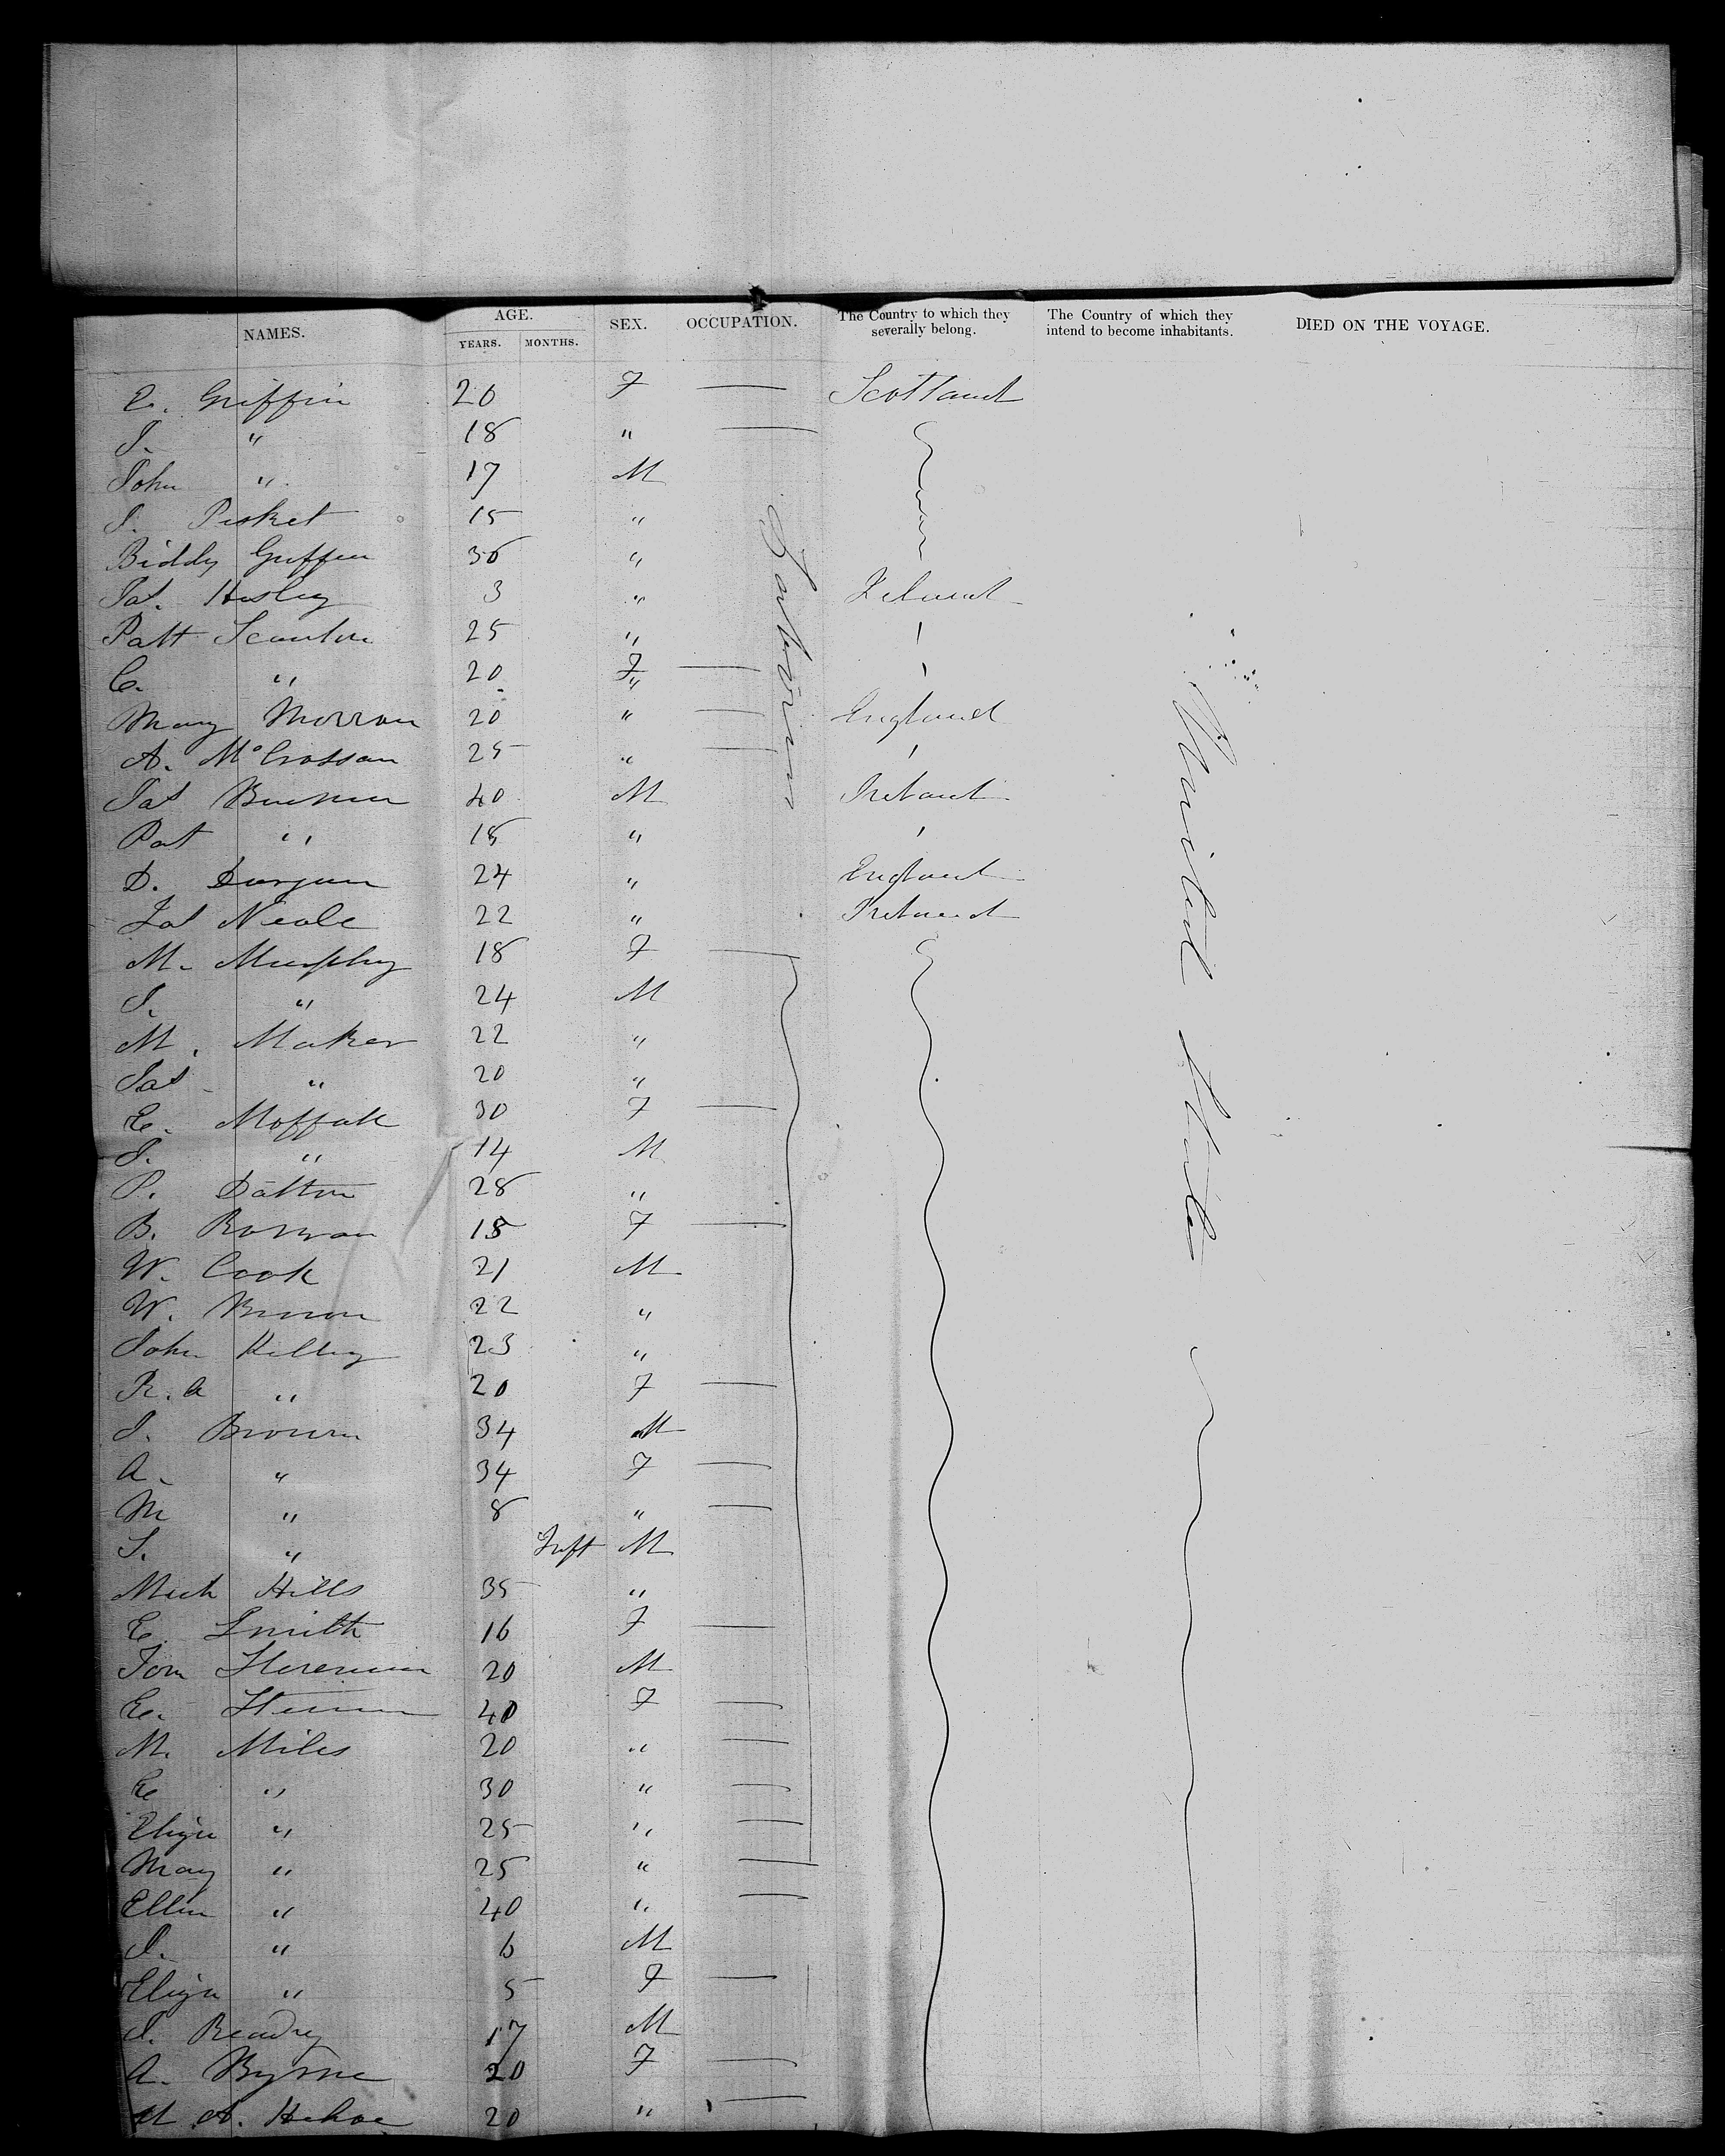 NAMES. AGE. YEARS. MONTHS. SEX. OCCUPATION. The Country to which they severally belong. The Country of which they intend to become inhabitants. DIED ON THE VOYAGE.
E. Griffin 20 F — Scotland
J. " 18 " —
John " 17 M
J. Pisket 15 "
Biddy Griffen 36 "
Jas. Hosley 3 " Ireland
Patt Scanlon 25 " '
C. " 20 F — '
Mary Morran 20 " — England
A. McCrossan 25 " — '
Jas 40 M Ireland
Pat " 18 " '
D. 24 " England
Jas Neale 22 " Ireland
M. Murphy 18 F —
J. " 24 M
M. Maker 22 "
Jas " 20 "
E. Moffatt 30 F —
J. " 14 M
P. Dalton 28 "
B. 18 F —
W. Cook 21 M
W. Brown 22 "
John Kelley 23 "
R. A " 20 F —
J. Brown 34 M
A. " 34 F —
M " 8 " —
S. " Inft M
Mich Hills 35 "
E. Smith 16 F —
Tom 20 M
E. 40 F —
M. Miles 20 " —
E " 30 " —
Eliza " 25 " —
Mary " 25 " —
Ellen " 40 " —
J. " 6 M
Eliza " 5 F —
J. Readry 17 M
A. Byrne 20 F —
M A. Kehoe 20 " —
Labourers
United States